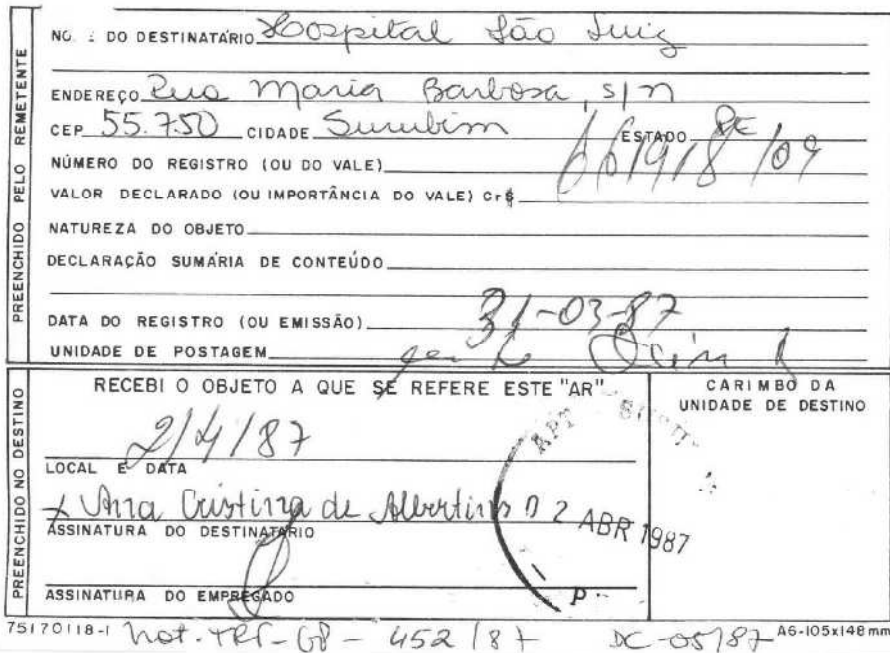 PREENCHIDO PELO REMETENTE
DO DESTINATÁRIO Hospital São Luiz
ENDEREÇO Rua Maria Barbosa, s/n
CEP 55.750 CIDADE Surubim ESTADO PE
NÚMERO DO REGISTRO (OU DO VALE)
VALOR DECLARADO (OU IMPORTÂNCIA DO VALE) Cr$
NATUREZA DO OBJETO
DECLARAÇÃO SUMÁRIA DE CONTEÚDO
DATA DO REGISTRO (OU EMISSÃO) 31-03-87
UNIDADE DE POSTAGEM
PREENCHIDO NO DESTINO
RECEBI O OBJETO A QUE SE REFERE ESTE "AR"
2/4/87
LOCAL E DATA
x Ana Cristina de Albertins
ASSINATURA DO DESTINATÁRIO
ASSINATURA DO EMPREGADO
CARIMBO DA
UNIDADE DE DESTINO
02 ABR 1987
75170118-1
Not. TRT-GP- 452/87 DC-05/87
A6-105x148mm